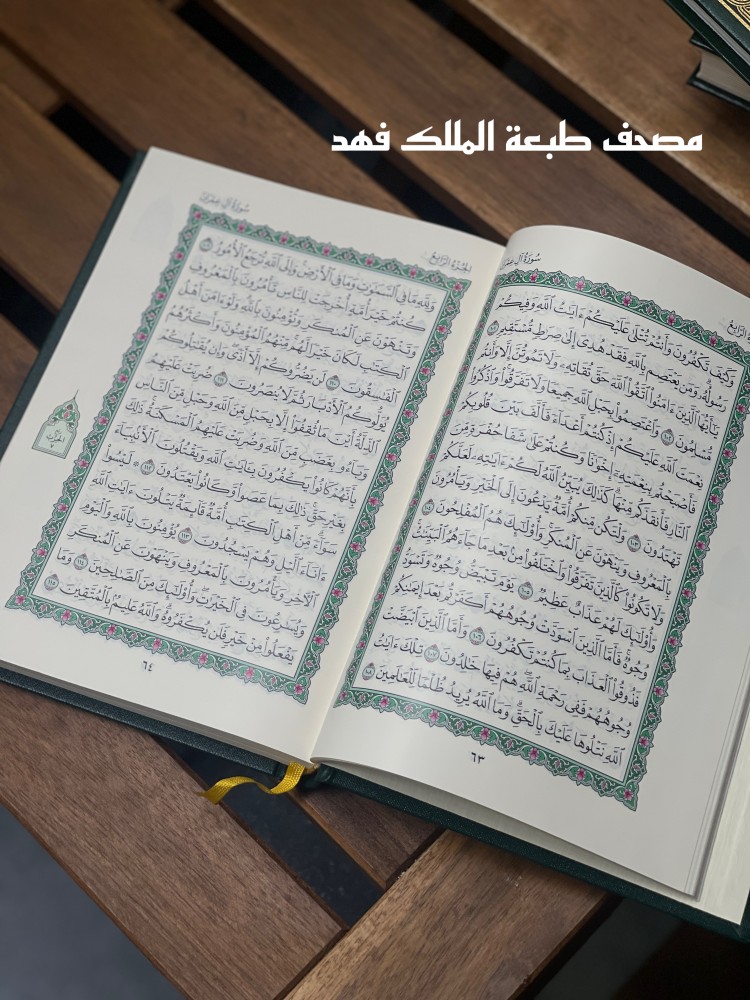 مصحف طبعة الملك فهد
سُورَةُ آلِ عِمْرَانَ
وَكَيْفَ تَكْفُرُونَ وَأَنتُمْ تُتْلَىٰ عَلَيْكُمْ ءَايَٰتُ ٱللَّهِ وَفِيكُمْ
رَسُولُهُۥۗ وَمَن يَعْتَصِم بِٱللَّهِ فَقَدْ هُدِيَ إِلَىٰ صِرَٰطٖ مُّسْتَقِيمٖ ١٠١
يَٰٓأَيُّهَا ٱلَّذِينَ ءَامَنُواْ ٱتَّقُواْ ٱللَّهَ حَقَّ تُقَاتِهِۦ وَلَا تَمُوتُنَّ إِلَّا وَأَنتُم
مُّسْلِمُونَ ١٠٢ وَٱعْتَصِمُواْ بِحَبْلِ ٱللَّهِ جَمِيعٗا وَلَا تَفَرَّقُواْۚ وَٱذْكُرُواْ
نِعْمَتَ ٱللَّهِ عَلَيْكُمْ إِذْ كُنتُمْ أَعْدَآءٗ فَأَلَّفَ بَيْنَ قُلُوبِكُمْ
فَأَصْبَحْتُم بِنِعْمَتِهِۦٓ إِخْوَٰنٗا وَكُنتُمْ عَلَىٰ شَفَا حُفْرَةٖ مِّنَ
ٱلنَّارِ فَأَنقَذَكُم مِّنْهَاۗ كَذَٰلِكَ يُبَيِّنُ ٱللَّهُ لَكُمْ ءَايَٰتِهِۦ لَعَلَّكُمْ
تَهْتَدُونَ ١٠٣ وَلْتَكُن مِّنكُمْ أُمَّةٞ يَدْعُونَ إِلَى ٱلْخَيْرِ وَيَأْمُرُونَ
بِٱلْمَعْرُوفِ وَيَنْهَوْنَ عَنِ ٱلْمُنكَرِۚ وَأُوْلَٰٓئِكَ هُمُ ٱلْمُفْلِحُونَ ١٠٤
وَلَا تَكُونُواْ كَٱلَّذِينَ تَفَرَّقُواْ وَٱخْتَلَفُواْ مِنۢ بَعْدِ مَا جَآءَهُمُ ٱلْبَيِّنَٰتُۚ
وَأُوْلَٰٓئِكَ لَهُمْ عَذَابٌ عَظِيمٞ ١٠٥ يَوْمَ تَبْيَضُّ وُجُوهٞ وَتَسْوَدُّ
وُجُوهٞۚ فَأَمَّا ٱلَّذِينَ ٱسْوَدَّتْ وُجُوهُهُمْ أَكَفَرْتُم بَعْدَ إِيمَٰنِكُمْ
فَذُوقُواْ ٱلْعَذَابَ بِمَا كُنتُمْ تَكْفُرُونَ ١٠٦ وَأَمَّا ٱلَّذِينَ ٱبْيَضَّتْ
وُجُوهُهُمْ فَفِي رَحْمَةِ ٱللَّهِۖ هُمْ فِيهَا خَٰلِدُونَ ١٠٧ تِلْكَ ءَايَٰتُ
ٱللَّهِ نَتْلُوهَا عَلَيْكَ بِٱلْحَقِّۗ وَمَا ٱللَّهُ يُرِيدُ ظُلْمٗا لِّلْعَٰلَمِينَ ١٠٨
٦٣
الجُزْءُ الرَّابِعُ
سُورَةُ آلِ عِمْرَانَ
وَلِلَّهِ مَا فِي ٱلسَّمَٰوَٰتِ وَمَا فِي ٱلْأَرْضِۚ وَإِلَى ٱللَّهِ تُرْجَعُ ٱلْأُمُورُ ١٠٩
كُنتُمْ خَيْرَ أُمَّةٍ أُخْرِجَتْ لِلنَّاسِ تَأْمُرُونَ بِٱلْمَعْرُوفِ
وَتَنْهَوْنَ عَنِ ٱلْمُنكَرِ وَتُؤْمِنُونَ بِٱللَّهِۗ وَلَوْ ءَامَنَ أَهْلُ
ٱلْكِتَٰبِ لَكَانَ خَيْرٗا لَّهُمۚ مِّنْهُمُ ٱلْمُؤْمِنُونَ وَأَكْثَرُهُمُ
ٱلْفَٰسِقُونَ ١١٠ لَن يَضُرُّوكُمْ إِلَّآ أَذٗىۖ وَإِن يُقَٰتِلُوكُمْ
يُوَلُّوكُمُ ٱلْأَدْبَارَ ثُمَّ لَا يُنصَرُونَ ١١١ ضُرِبَتْ عَلَيْهِمُ
ٱلذِّلَّةُ أَيْنَ مَا ثُقِفُوٓاْ إِلَّا بِحَبْلٖ مِّنَ ٱللَّهِ وَحَبْلٖ مِّنَ ٱلنَّاسِ
وَبَآءُو بِغَضَبٖ مِّنَ ٱللَّهِ وَضُرِبَتْ عَلَيْهِمُ ٱلْمَسْكَنَةُۚ ذَٰلِكَ
بِأَنَّهُمْ كَانُواْ يَكْفُرُونَ بِـَٔايَٰتِ ٱللَّهِ وَيَقْتُلُونَ ٱلْأَنۢبِيَآءَ
بِغَيْرِ حَقّٖۚ ذَٰلِكَ بِمَا عَصَواْ وَّكَانُواْ يَعْتَدُونَ ١١٢ ۞ لَيْسُواْ
سَوَآءٗۗ مِّنْ أَهْلِ ٱلْكِتَٰبِ أُمَّةٞ قَآئِمَةٞ يَتْلُونَ ءَايَٰتِ ٱللَّهِ
ءَانَآءَ ٱلَّيْلِ وَهُمْ يَسْجُدُونَ ١١٣ يُؤْمِنُونَ بِٱللَّهِ وَٱلْيَوْمِ
ٱلْأٓخِرِ وَيَأْمُرُونَ بِٱلْمَعْرُوفِ وَيَنْهَوْنَ عَنِ ٱلْمُنكَرِ
وَيُسَٰرِعُونَ فِي ٱلْخَيْرَٰتِۖ وَأُوْلَٰٓئِكَ مِنَ ٱلصَّٰلِحِينَ ١١٤ وَمَا
يَفْعَلُواْ مِنْ خَيْرٖ فَلَن يُكْفَرُوهُۗ وَٱللَّهُ عَلِيمُۢ بِٱلْمُتَّقِينَ ١١٥
٦٤